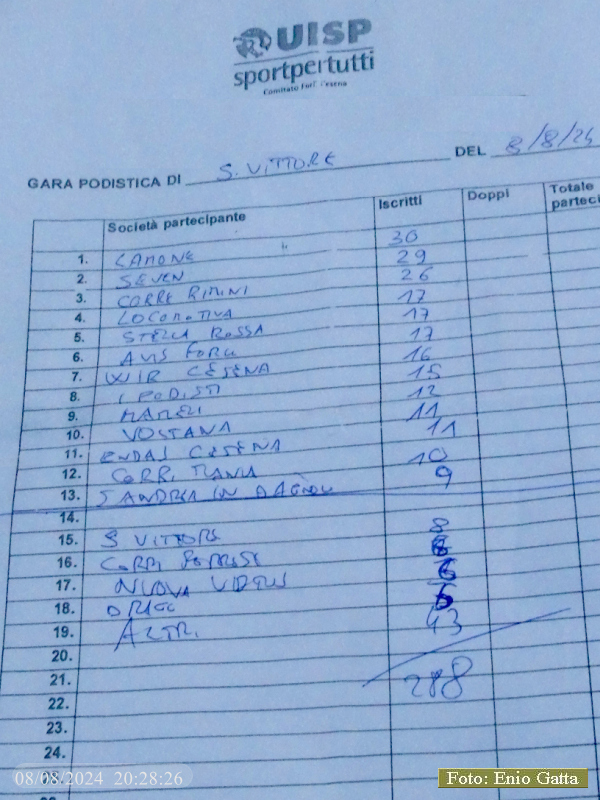 UISP
sportpertutti
Comitato Forlì Cesena
GARA PODISTICA DI S. VITTORE DEL 8/8/24
Società partecipante Iscritti Doppi Totale parteci
1. CAMONE 30
2. SEVEN 29
3. CORRE RIMINI 26
4. LOCOMOTIVA 17
5. STELLA ROSSA 17
6. AVIS FORLI 17
7. CESENA 16
8. I PODISTI 15
9. MAMELI 12
10. VOLTANA 11
11. ENDAS CESENA 11
12. CORRI 10
13. S ANDREA IN 9
14.
15. S VITTORE 8
16. CORRI
17. NUOVA VIRTUS 6
18.
19. ALTRI 43
20.
21. 288
22.
23.
24.
08/08/2024 20:28:26
Foto: Enio Gatta